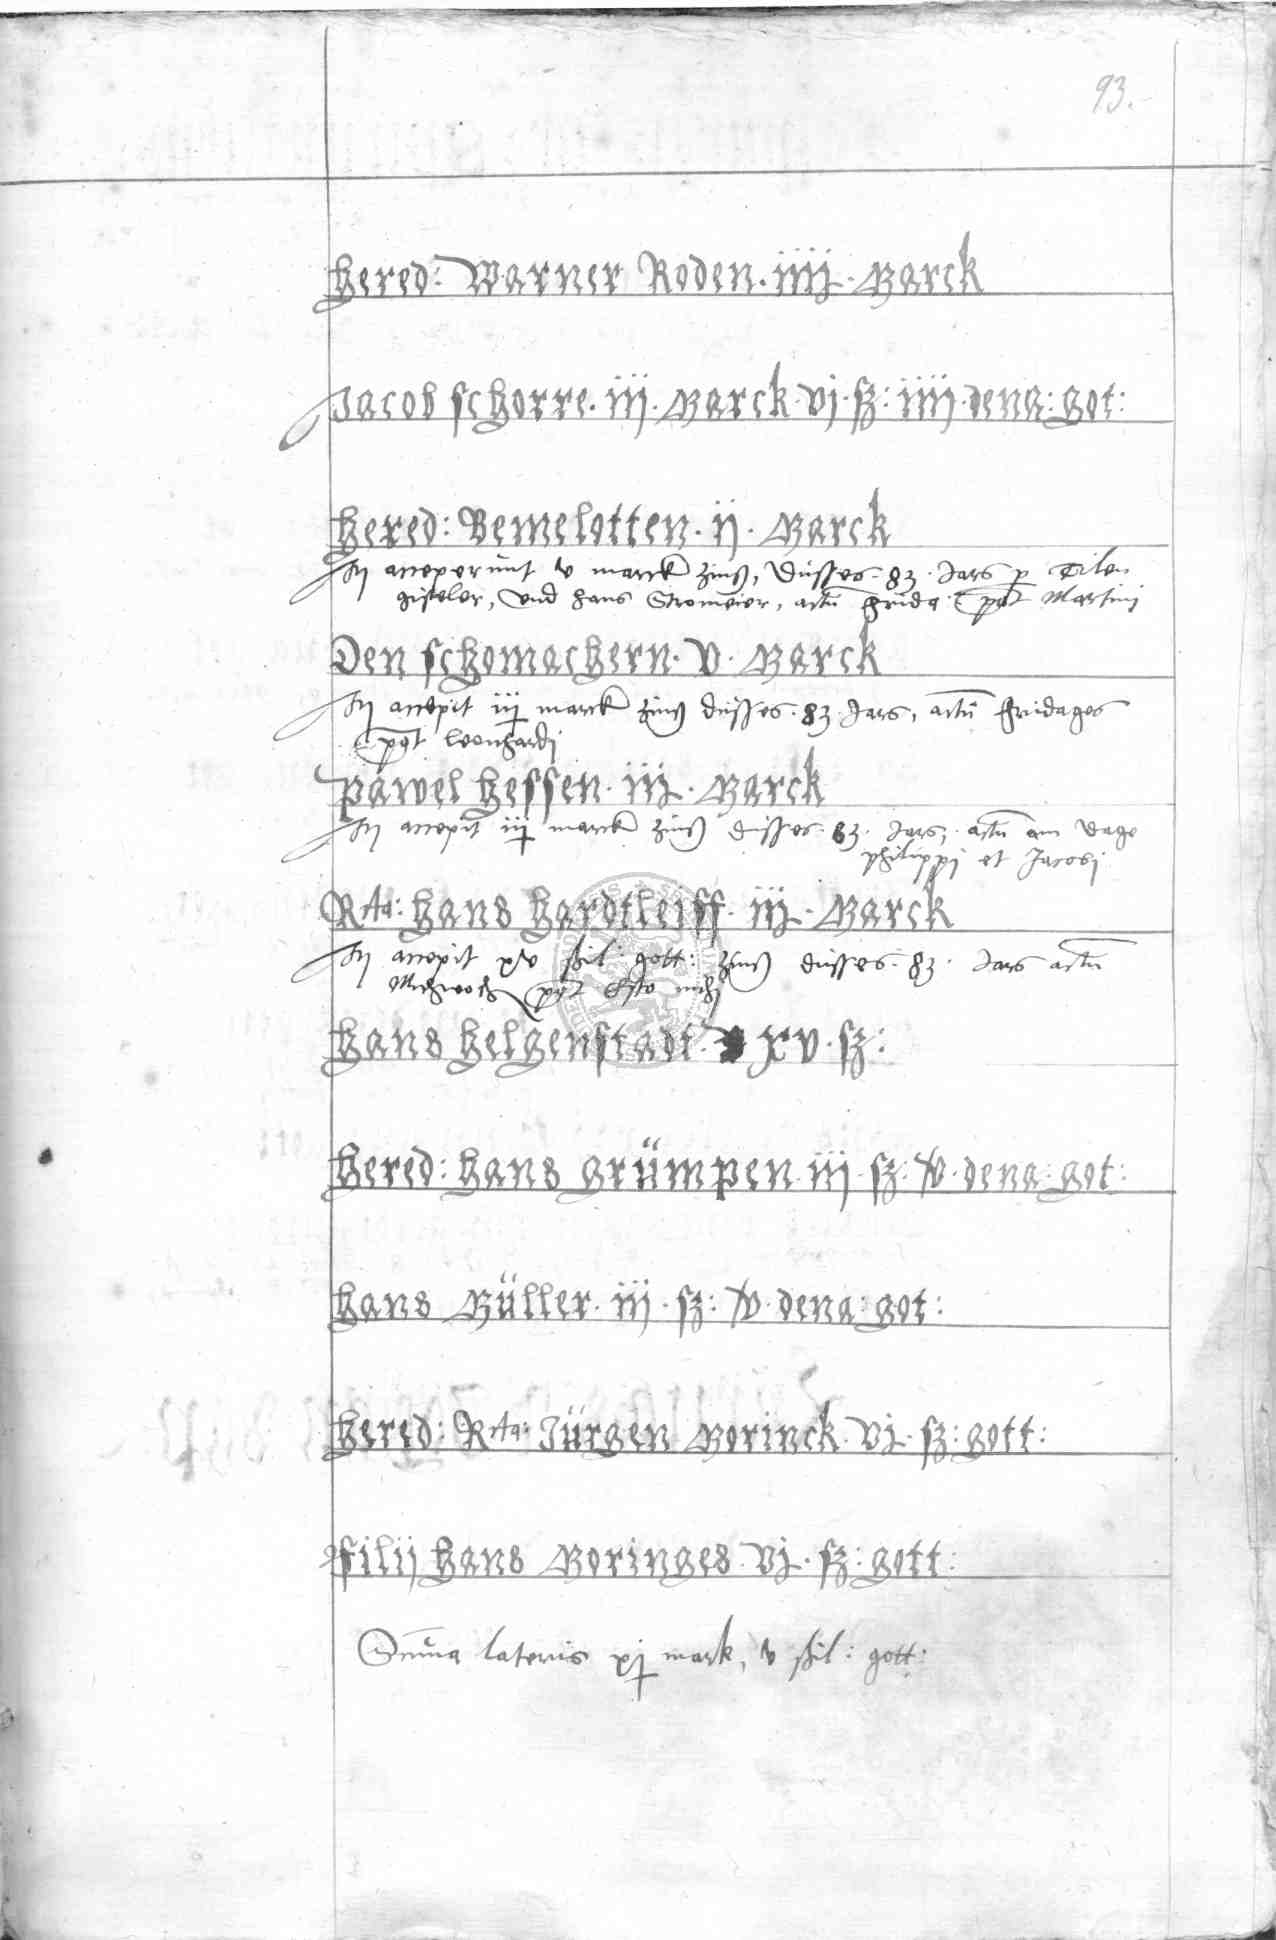 93.
Hered: Warner Roden. iiij. Marck
Jacob schorre. iij. Marck. vj. sz: iiij. dena: got:
Hered: Bemelotten. ij. Marck
acceperunt v marck zinß, düsses. 83. Jars p Tilen
giseler, und Hans Stromeier, actu frida post Martinj
Den schomachern. v. Marck
accepit iij marck zinß düsses. 83. Jars, actu fridages
post Leonhardj
Pawel Hessen. iij. Marck
accepit iij marck zinß disses. 83. Jars, actu am dage
philippj et Jacobj
Rta: Hans Hardtleiff. iij. Marck
accepit xv shil: gott: zinß düsses. 83. Jars actu
Mitwoch post Esto michj
Hans Helgenstadt. xv. sz:
Hered: Hans Grümpen. iij. sz: v. dena: got:
Hans Müller. iij. sz: v. dena: got:
Hered: Rta: Jürgen Morinck. vj. sz: gott:
filij Hans Moringes. vj. sz: gott:
Suma lateris xj mark, v shil: gott: